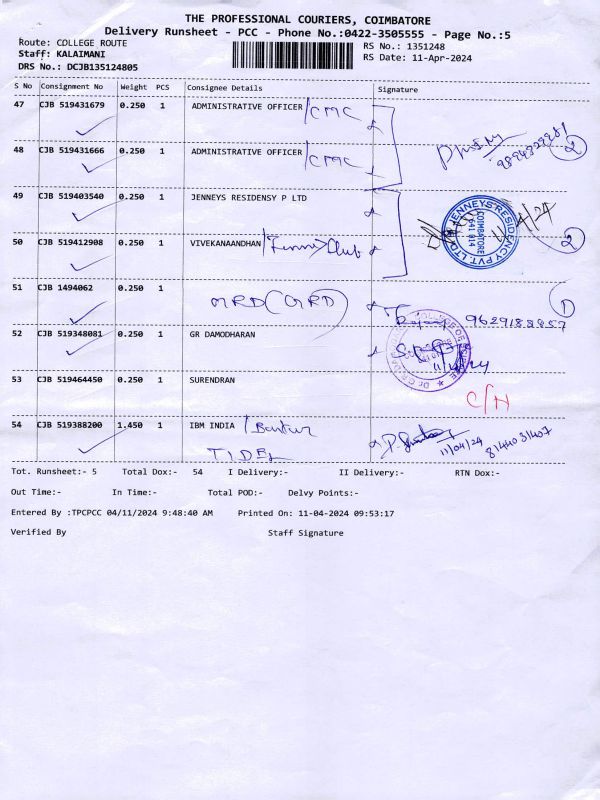 THE PROFESSIONAL COURIERS, COIMBATORE
Delivery Runsheet - PCC - Phone No.:0422-3505555 - Page No.:5
Route: COLLEGE ROUTE
RS No.: 1351248
Staff: KALAIMANI
RS Date: 11-Apr-2024
DRS No.: DCJB135124805
S No Consignment No Weight PCS Consignee Details Signature
47 CJB 519431679 0.250 1 ADMINISTRATIVE OFFICER /CMC
48 CJB 519431666 0.250 1 ADMINISTRATIVE OFFICER /CMC
2
49 CJB 519403540 0.250 1 JENNEYS RESIDENSY P LTD
JENNEYS RESIDENCY PVT. LTD.
COIMBATORE
641 014
11/4/24
50 CJB 519412908 0.250 1 VIVEKANAANDHAN /Tennis Club
2
51 CJB 1494062 0.250 1 MRD (GRD) 9629188857 1
52 CJB 519348081 0.250 1 GR DAMODHARAN
11/4/24
53 CJB 519464450 0.250 1 SURENDRAN C/N
54 CJB 519388200 1.450 1 IBM INDIA
TIDEL
11/04/24 8144031407
Tot. Runsheet:- 5 Total Dox:- 54 I Delivery:- II Delivery:- RTN Dox:-
Out Time:- In Time:- Total POD:- Delvy Points:-
Entered By :TPCPCC 04/11/2024 9:48:40 AM Printed On: 11-04-2024 09:53:17
Verified By Staff Signature